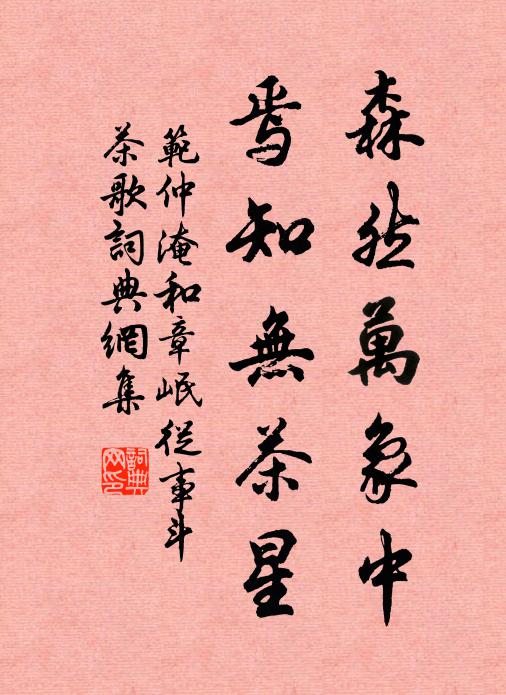 森然萬象中
焉知無茶星
範仲淹和章岷從事斗
茶歌詞典網集
詞典
网印